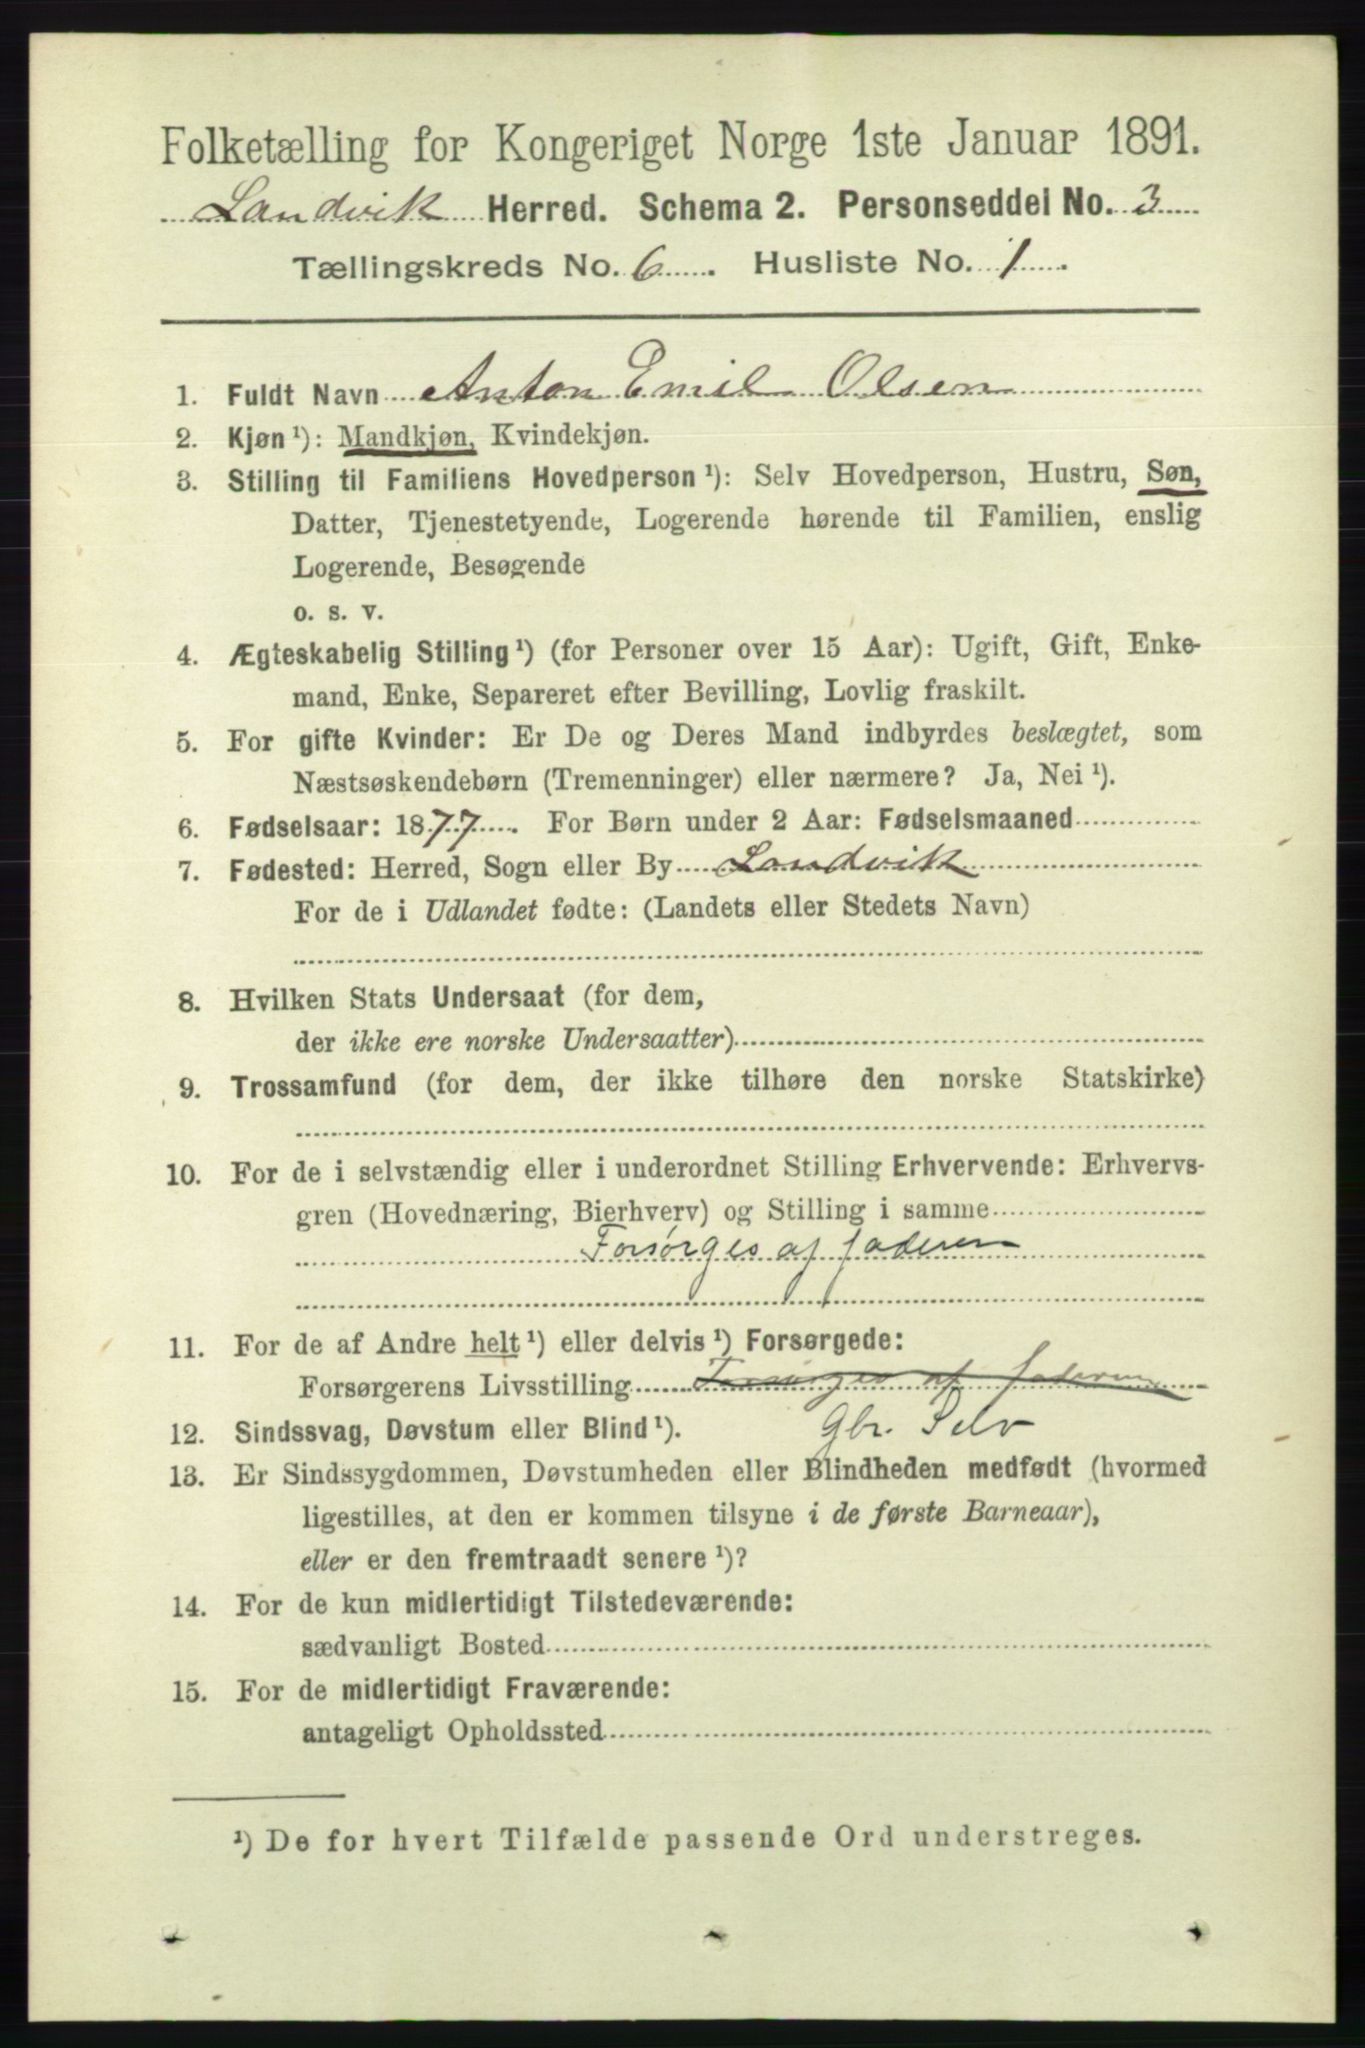 Folketælling for Kongeriget Norge 1ste Januar 1891.
Landvik Herred. Schema 2. Personseddel No. 3
Tællingskreds No. 6. Husliste No. 1.
1. Fuldt Navn Anton Emil Olsen
2. Kjøn ¹): Mandkjøn, Kvindekjøn.
3. Stilling til Familiens Hovedperson ¹): Selv Hovedperson, Hustru, Søn,
Datter, Tjenestetyende, Logerende hørende til Familien, enslig
Logerende, Besøgende
o. s. v.
4. Ægteskabelig Stilling ¹) (for Personer over 15 Aar): Ugift, Gift, Enke-
mand, Enke, Separeret efter Bevilling, Lovlig fraskilt.
5. For gifte Kvinder: Er De og Deres Mand indbyrdes beslægtet, som
Næstsøskendebørn (Tremenninger) eller nærmere? Ja, Nei ¹).
6. Fødselsaar: 1877. For Børn under 2 Aar: Fødselsmaaned
7. Fødested: Herred, Sogn eller By Landvik
For de i Udlandet fødte: (Landets eller Stedets Navn)
8. Hvilken Stats Undersaat (for dem,
der ikke ere norske Undersaatter)
9. Trossamfund (for dem, der ikke tilhøre den norske Statskirke)
10. For de i selvstændig eller i underordnet Stilling Erhvervende: Erhvervs-
gren (Hovednæring, Bierhverv) og Stilling i samme
Forsørges af faderen
11. For de af Andre helt ¹) eller delvis ¹) Forsørgede:
Forsørgerens Livsstilling Forsørges af faderen
12. Sindssvag, Døvstum eller Blind ¹). Gbr. Selv
13. Er Sindssygdommen, Døvstumheden eller Blindheden medfødt (hvormed
ligestilles, at den er kommen tilsyne i de første Barneaar),
eller er den fremtraadt senere ¹)?
14. For de kun midlertidigt Tilstedeværende:
sædvanligt Bosted
15. For de midlertidigt Fraværende:
antageligt Opholdssted
¹) De for hvert Tilfælde passende Ord understreges.